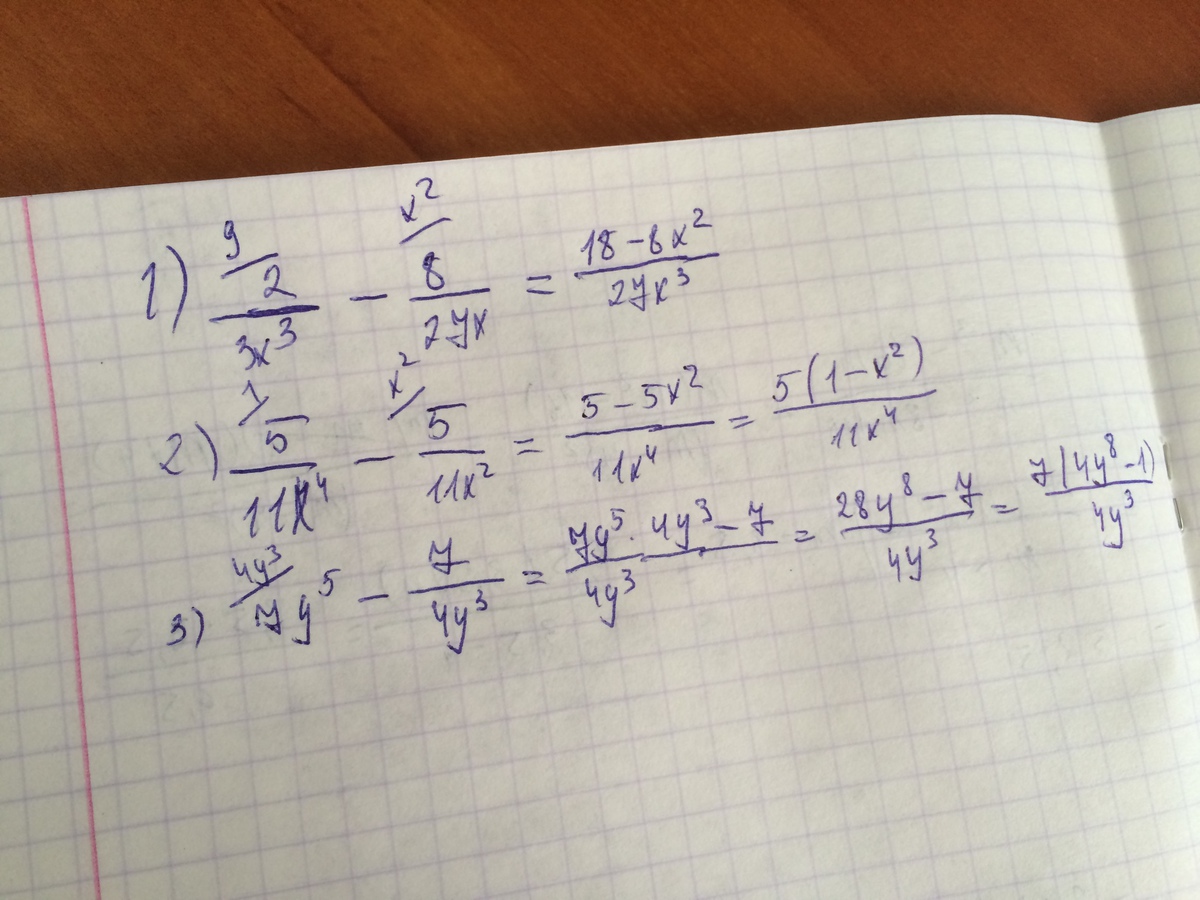 1) 9/ 2/3x³ − x²/ 8/27x = (18−8x²)/27x³
2) 1/ 5/11x⁴ − x²/ 5/11x² = (5−5x²)/11x⁴ = 5(1−x²)/11x⁴
3) 4y³/ 7y⁵ − 7/4y³ = (7y⁵·4y³−7)/4y³ = (28y⁸−7)/4y³ = 7(4y⁸−1)/4y³